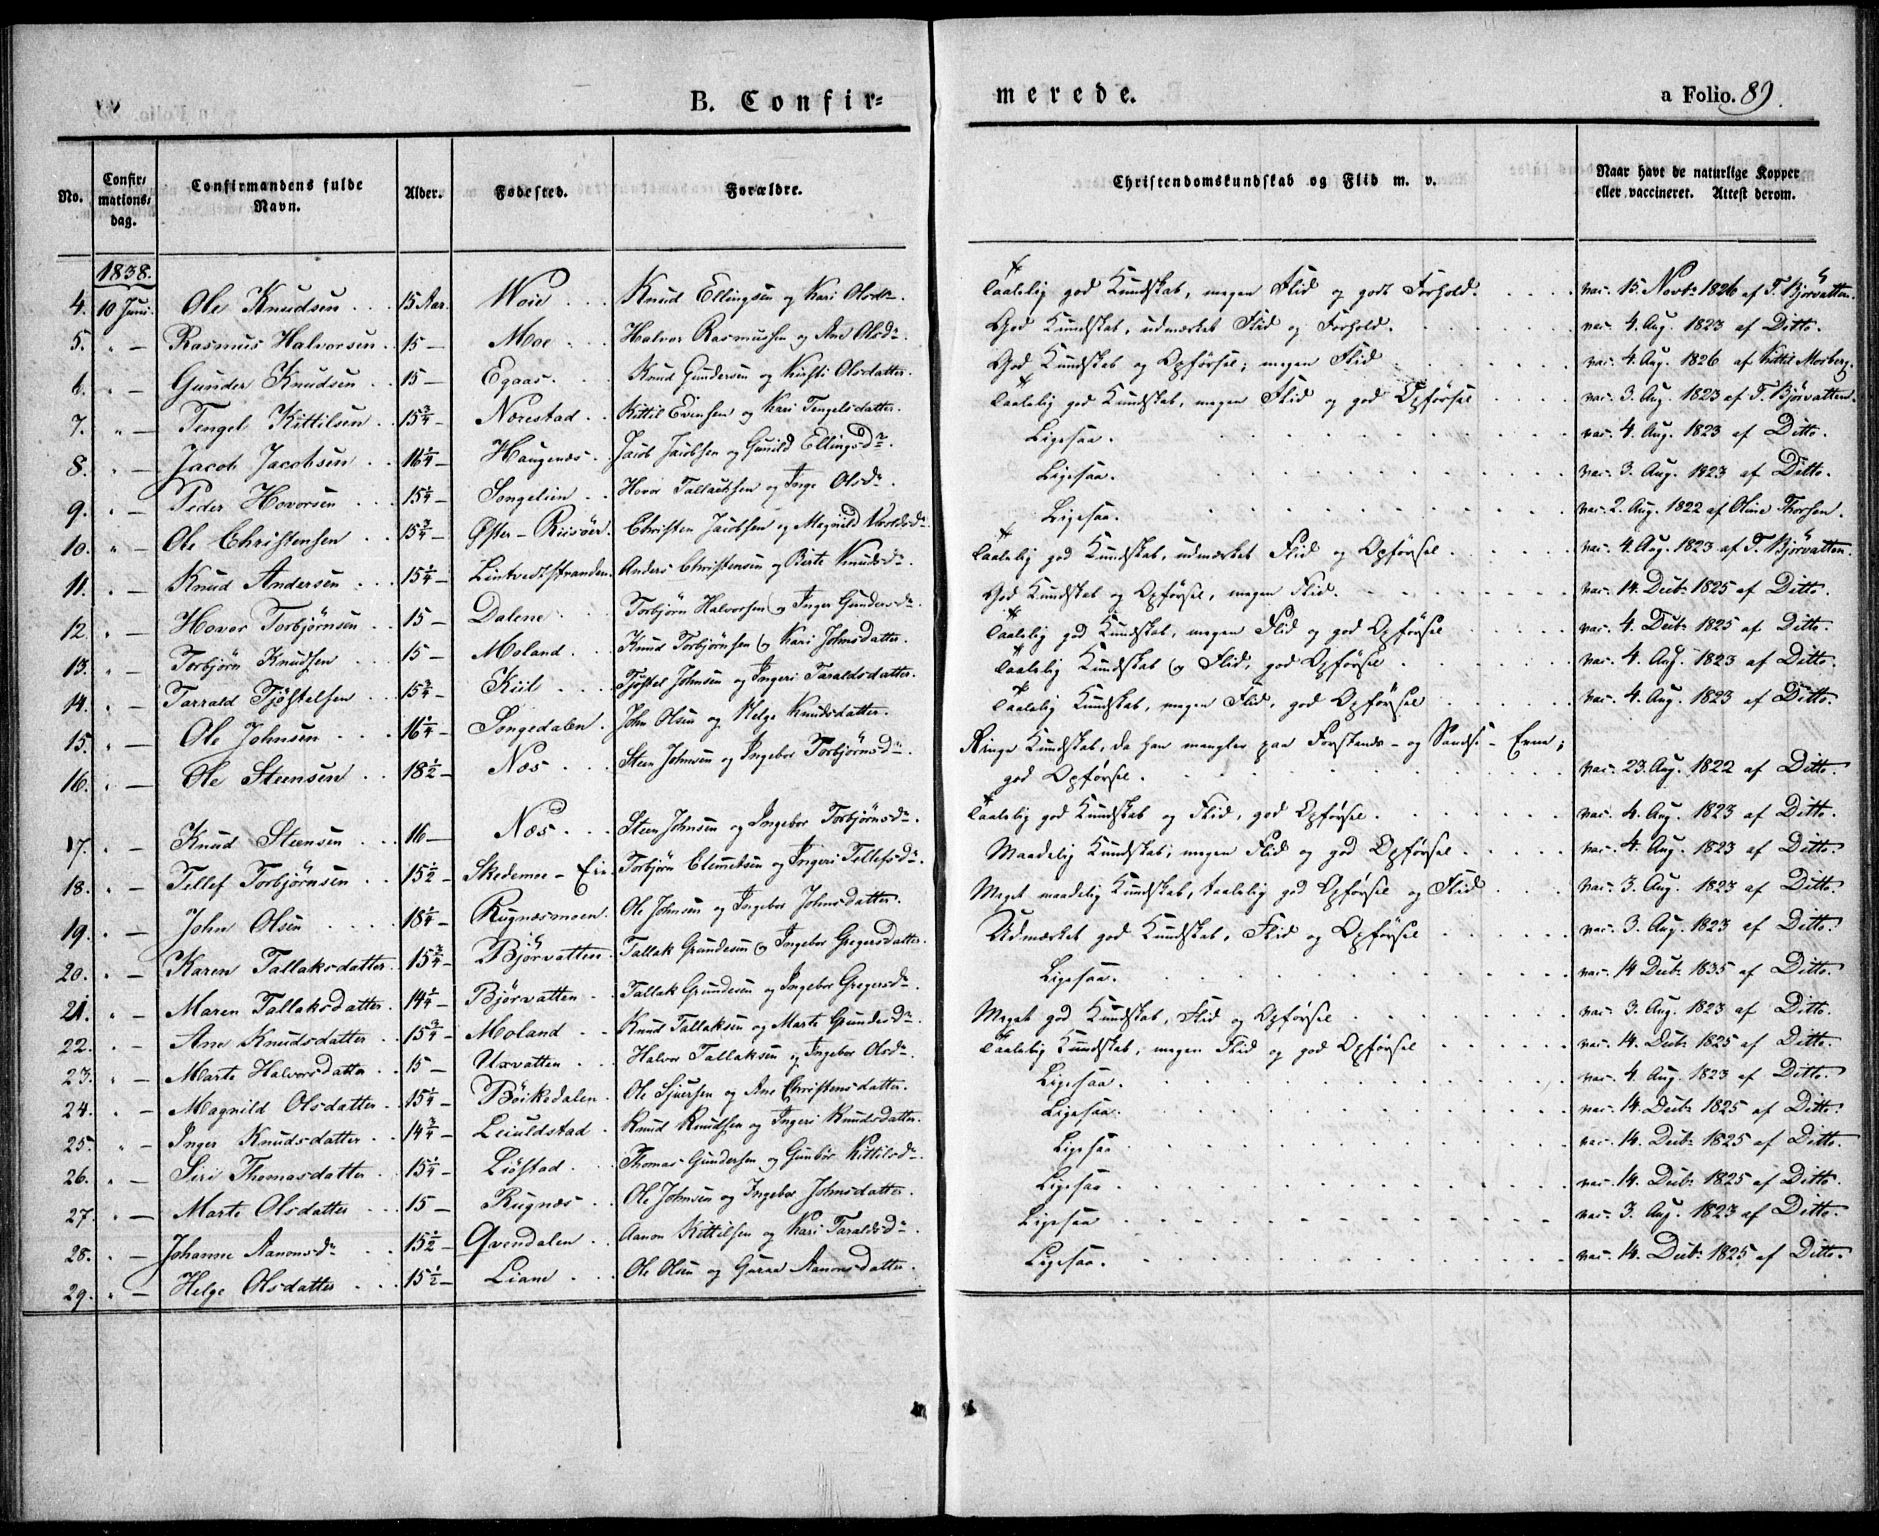 B. Confir= merede. a Folio. 89.
No. Confir/mations/dag. Confirmandens fulde Navn. Alder. Fødested. Forældre. Christendomskundskab og Flid m. v. Naar havt de naturlige Kopper eller vaccineret. Attest derom.
1838.
4. 10 Juni. Ole Knudsen 15 Aar. Woie Knud Ellingsen og Kari Olsdr. Taalelig god Kundskab, megen Flid og godt Forhold. vac. 15. Novbr 1826 af T. Bjørvatten.
5. " — Rasmus Halvorsen 15 — Moe Halvor Rasmussen og Ane Olsdr. God Kundskab, udmærket Flid og Forhold. vac. 4. Aug. 1823 af Ditto.
6. " — Gunder Knudsen 15 — Egaas. Knud Gundersen og Kirsti Olsdatter. God Kundskab og Opførsel; megen Flid vac. 4. Aug. 1826 af Kittil Mosberg.
7. " — Tengel Kittilsen 15¾ — Nærestad Kittil Evensen og Kari Tengelsdatter. Taalelig god Kundskab, megen Flid og god Opførsel vac. 3. Aug. 1823 af T. Bjørvatten.
8. " — Jacob Jacobsen 16¼ — Haugenæs Jacob Jacobsen og Gunild Ellingsdr. Ligesaa. vac. 4. Aug. 1823 af Ditto.
9. " — Peder Hovorsen 15¼ — Songelien Hovor Tallaksen og Inge Olsdr. Ligesaa. vac. 3. Aug. 1823 af Ditto.
10. " — Ole Christensen 15¾ — Øster-Riisöer. Christen Jacobsen og Magnild Ligesaa. vac. 2. Aug. 1822 af Oline Thorsen.
11. " — Knud Andersen 15¼ — Lintvedtstranden. Anders Christensen og Berte Knudsdr. Taalelig god Kundskab, udmærket Flid og Opførsel. vac. 4. Aug. 1823 af T. Bjørvatten.
12. " — Hovor Torbjørnsen 15 — Dalene Torbjørn Halvorsen og Inger Gundersdr. God Kundskab og Opførsel, megen Flid. vac. 14. Decbr 1825 af Ditto.
13. " — Torbjørn Knudsen 15 — Moland. Knud Torbjørnsen og Kari Johnsdatter. Taalelig god Kundskab, megen Flid og god Opførsel vac. 4. Decbr 1825 af Ditto.
14. " — Tarrald Tjøstelsen 15¾ — Kiil Tjøstel Johnsen og Ingeri Taraldsdatter. Taalelig Kundskab og Flid, god Opførsel vac. 4. Aug. 1823 af Ditto.
15. " — Ole Johnsen 16¼ — Songedalen. John Olsen og Helge Knudsdatter. Taalelig Kundskab, megen Flid, god Opførsel vac. 4. Aug. 1823 af Ditto.
16. " — Ole Steensen 18½ — Næs Steen Johnsen og Ingebor Torbjørnsdr. Ringe Kundskab, da han mangler paa Forstands- og Sands- Evne;
god Opførsel. vac. 23. Aug. 1822 af Ditto.
17. " — Knud Steensen 16 — Næs Steen Johnsen og Ingebor Torbjørnsdr. Taalelig god Kundskab og Flid, god Opførsel. vac. 4. Aug. 1823 af Ditto.
18. " — Tellef Torbjørnsen 15½ — Skedemoe - Eie. Torbjørn Clemetsen og Ingeri Tellefsdr. Maadelig Kundskab; megen Flid og god Opførsel vac. 4. Aug. 1823 af Ditto.
19. " — John Olsen 18¼ — Rugnæsmoen. Ole Johnsen og Ingebor Johnsdatter. Meget maadelig Kundskab, taalelig god Opførsel og Flid vac. 3. Aug. 1823 af Ditto.
20. " — Karen Tallaksdatter. 15¾ — Bjørvatten. Tallak Grundesen og Ingebor Gregersdatter. Udmærket god Kundskab, Flid og Opførsel vac. 3. Aug. 1823 af Ditto.
21. " — Maren Tallaksdatter 14¼ — Bjørvatten Tallak Grundesen og Ingebor Gregersdr. Ligesaa. vac. 14 Decbr 1835 af Ditto.
22. " — Ane Knudsdatter 15¾ — Moland Knud Tallaksen og Marte Grundesdr. Meget god Kundskab, Flid og Opførsel vac. 3. Aug. 1823 af Ditto.
23. " — Marte Halvorsdatter 15 — Uxvatten Halvor Tallaksen og Ingebor Olsdr. Taalelig Kundskab, megen Flid og god Opførsel vac. 14. Decbr 1825 af Ditto.
24. " — Magnild Olsdatter 15¼ — Böiksdalen. Ole Sjursen og Ane Christensdatter. Ligesaa. vac. 4. Aug. 1823 af Ditto.
25. " — Inger Knudsdatter 14¾ — Leiuldstad Knud Knudsen og Ingeri Knudsdatter. Ligesaa. vac. 14. Decbr 1825 af Ditto.
26. " — Siri Thomasdatter 15¼ — Liöstad Thomas Gundersen og Gunbör Kittilsdr. Ligesaa vac. 14. Decbr 1825 af Ditto.
27. " — Marte Olsdatter 15 — Rugnæs Ole Johnsen og Ingebor Johnsdatter. Ligesaa vac. 14. Decbr 1825 af Ditto.
28. " — Johanne Aanonsdr 15½ — Qvendalen Aanon Kittilsen og Kari Taraldsdr Ligesaa vac. 3. Aug. 1823 af Ditto.
29. " — Helge Olsdatter 15½ — Liane Ole Olsen og Aanonsdatter. Ligesaa. vac. 14. Decbr 1825 af Ditto.